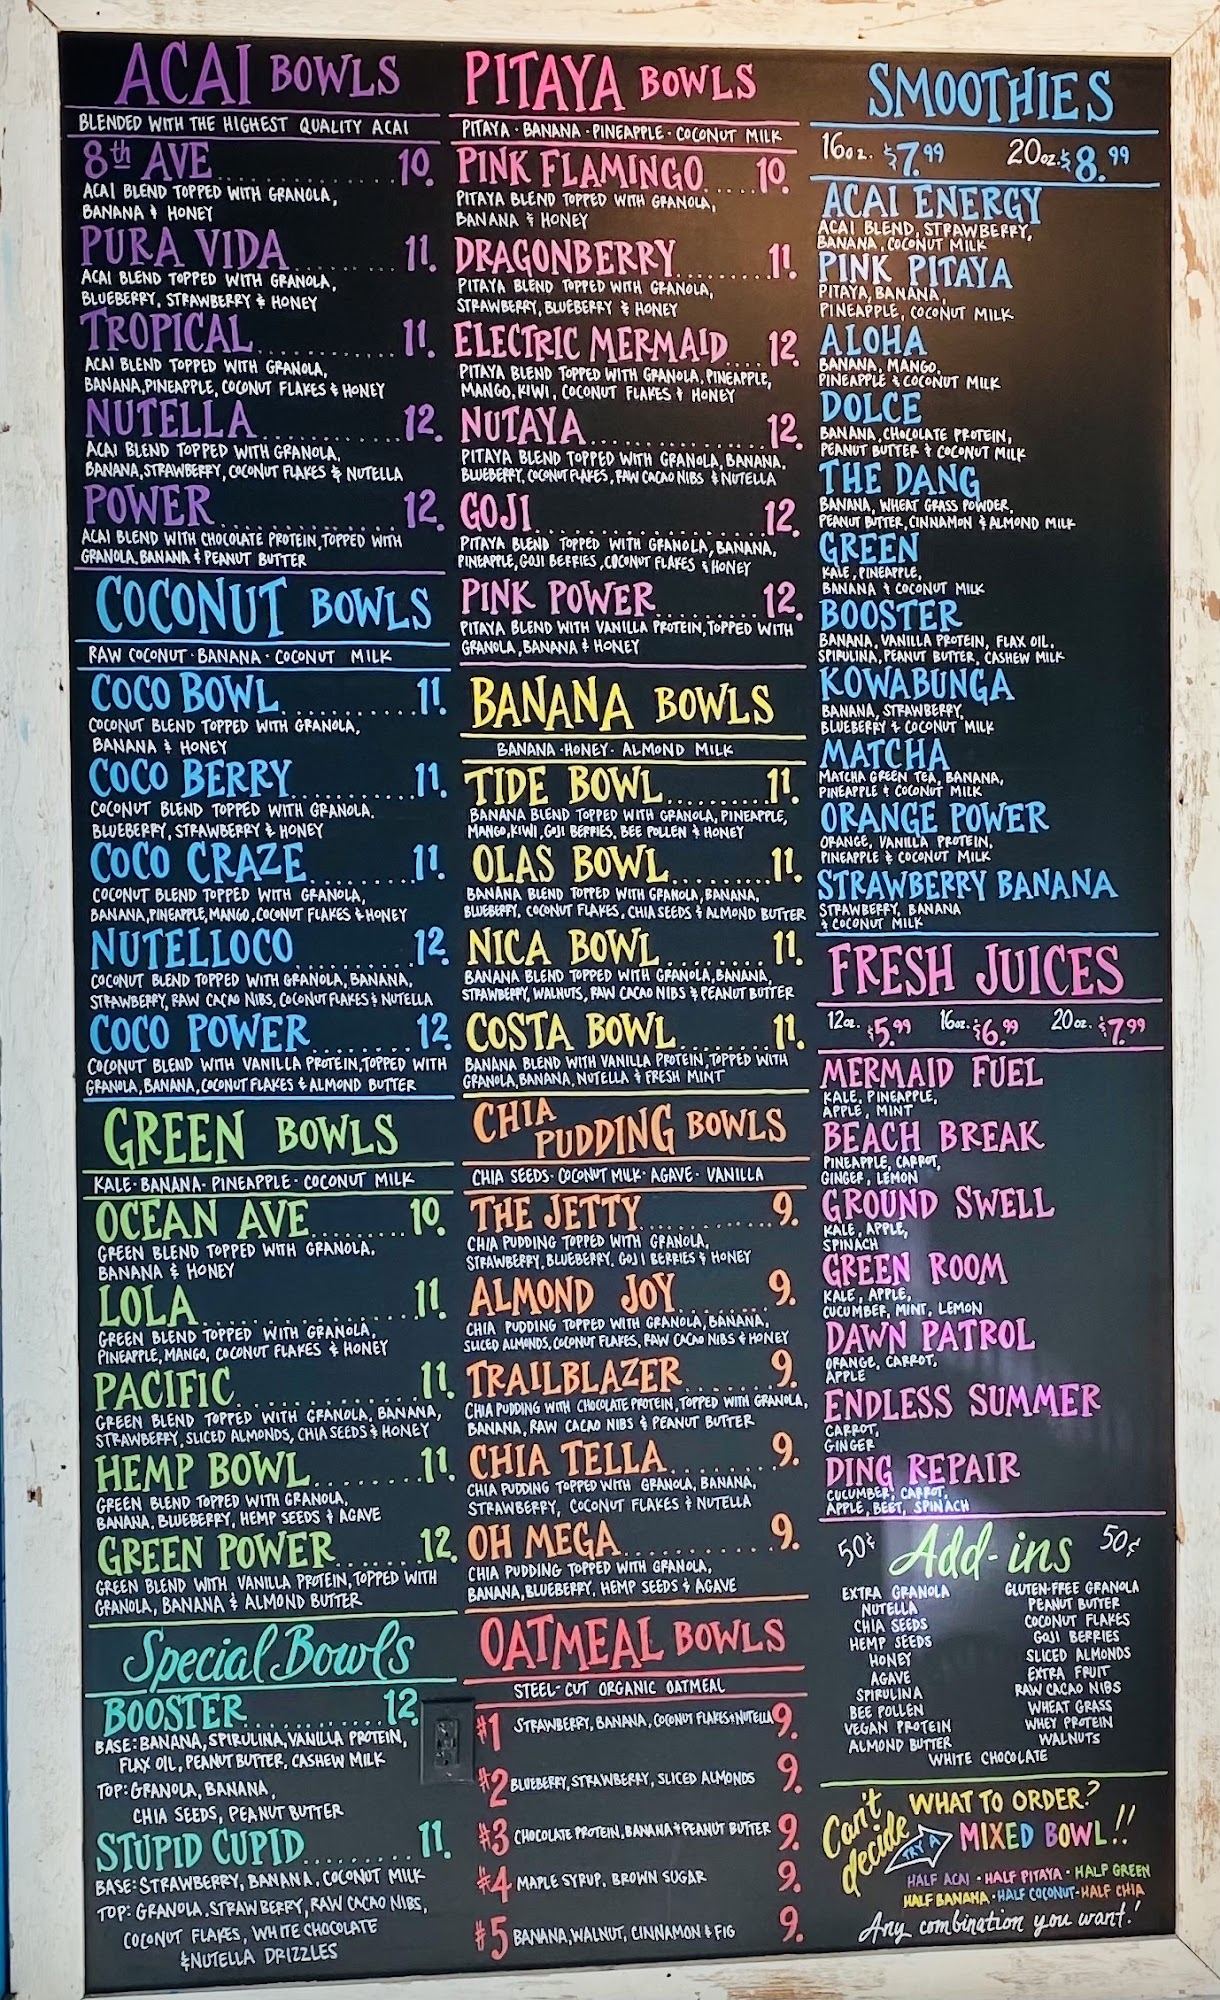 ACAI BOWLS
BLENDED WITH THE HIGHEST QUALITY ACAI
8th AVE 10.
ACAI BLEND TOPPED WITH GRANOLA,
BANANA & HONEY
PURA VIDA 11.
ACAI BLEND TOPPED WITH GRANOLA,
BLUEBERRY, STRAWBERRY & HONEY
TROPICAL 11.
ACAI BLEND TOPPED WITH GRANOLA,
BANANA, PINEAPPLE, COCONUT FLAKES & HONEY
NUTELLA 12.
ACAI BLEND TOPPED WITH GRANOLA,
BANANA, STRAWBERRY, COCONUT FLAKES & NUTELLA
POWER 12.
ACAI BLEND WITH CHOCOLATE PROTEIN, TOPPED WITH
GRANOLA, BANANA & PEANUT BUTTER
COCONUT BOWLS
RAW COCONUT · BANANA · COCONUT MILK
COCO BOWL 11.
COCONUT BLEND TOPPED WITH GRANOLA,
BANANA & HONEY
COCO BERRY 11.
COCONUT BLEND TOPPED WITH GRANOLA.
BLUEBERRY, STRAWBERRY & HONEY
COCO CRAZE 11.
COCONUT BLEND TOPPED WITH GRANOLA,
BANANA, PINEAPPLE, MANGO, COCONUT FLAKES & HONEY
NUTELLOCO 12.
COCONUT BLEND TOPPED WITH GRANOLA, BANANA,
STRAWBERRY, RAW CACAO NIBS, COCONUT FLAKES & NUTELLA
COCO POWER 12.
COCONUT BLEND WITH VANILLA PROTEIN, TOPPED WITH
GRANOLA, BANANA, COCONUT FLAKES & ALMOND BUTTER
GREEN BOWLS
KALE · BANANA · PINEAPPLE · COCONUT MILK
OCEAN AVE 10.
GREEN BLEND TOPPED WITH GRANOLA,
BANANA & HONEY
LOLA 11.
GREEN BLEND TOPPED WITH GRANOLA,
PINEAPPLE, MANGO, COCONUT FLAKES & HONEY
PACIFIC 11.
GREEN BLEND TOPPED WITH GRANOLA, BANANA,
STRAWBERRY, SLICED ALMONDS, CHIA SEEDS & HONEY
HEMP BOWL 11.
GREEN BLEND TOPPED WITH GRANOLA,
BANANA, BLUEBERRY, HEMP SEEDS & AGAVE
GREEN POWER 12.
GREEN BLEND WITH VANILLA PROTEIN, TOPPED WITH
GRANOLA, BANANA & ALMOND BUTTER
Special Bowls
BOOSTER 12.
BASE: BANANA, SPIRULINA, VANILLA PROTEIN,
FLAX OIL, PEANUT BUTTER, CASHEW MILK
TOP: GRANOLA, BANANA,
CHIA SEEDS, PEANUT BUTTER
STUPID CUPID 11.
BASE: STRAWBERRY, BANANA, COCONUT MILK
TOP: GRANOLA, STRAWBERRY, RAW CACAO NIBS,
COCONUT FLAKES, WHITE CHOCOLATE
& NUTELLA DRIZZLES
PITAYA BOWLS
PITAYA · BANANA · PINEAPPLE · COCONUT MILK
PINK FLAMINGO 10.
PITAYA BLEND TOPPED WITH GRANOLA,
BANANA & HONEY
DRAGONBERRY 11.
PITAYA BLEND TOPPED WITH GRANOLA,
STRAWBERRY, BLUEBERRY & HONEY
ELECTRIC MERMAID 12.
PITAYA BLEND TOPPED WITH GRANOLA, PINEAPPLE,
MANGO, KIWI, COCONUT FLAKES & HONEY
NUTAYA 12.
PITAYA BLEND TOPPED WITH GRANOLA, BANANA,
BLUEBERRY, COCONUT FLAKES, RAW CACAO NIBS & NUTELLA
GOJI 12.
PITAYA BLEND TOPPED WITH GRANOLA, BANANA,
PINEAPPLE, GOJI BERRIES, COCONUT FLAKES & HONEY
PINK POWER 12.
PITAYA BLEND WITH VANILLA PROTEIN, TOPPED WITH
GRANOLA, BANANA & HONEY
BANANA BOWLS
BANANA · HONEY · ALMOND MILK
TIDE BOWL 11.
BANANA BLEND TOPPED WITH GRANOLA, PINEAPPLE,
MANGO, KIWI, GOJI BERRIES, BEE POLLEN & HONEY
OLAS BOWL 11.
BANANA BLEND TOPPED WITH GRANOLA, BANANA,
BLUEBERRY, COCONUT FLAKES, CHIA SEEDS & ALMOND BUTTER
NICA BOWL 11.
BANANA BLEND TOPPED WITH GRANOLA, BANANA,
STRAWBERRY, WALNUTS, RAW CACAO NIBS & PEANUT BUTTER
COSTA BOWL 11.
BANANA BLEND WITH VANILLA PROTEIN, TOPPED WITH
GRANOLA, BANANA, NUTELLA & FRESH MINT
CHIA PUDDING BOWLS
CHIA SEEDS · COCONUT MILK · AGAVE · VANILLA
THE JETTY 9.
CHIA PUDDING TOPPED WITH GRANOLA,
STRAWBERRY, BLUEBERRY, GOJI BERRIES & HONEY
ALMOND JOY 9.
CHIA PUDDING TOPPED WITH GRANOLA, BANANA,
SLICED ALMONDS, COCONUT FLAKES, RAW CACAO NIBS & HONEY
TRAILBLAZER 9.
CHIA PUDDING WITH CHOCOLATE PROTEIN, TOPPED WITH GRANOLA,
BANANA, RAW CACAO NIBS & PEANUT BUTTER
CHIA TELLA 9.
CHIA PUDDING TOPPED WITH GRANOLA, BANANA,
STRAWBERRY, COCONUT FLAKES & NUTELLA
OH MEGA 9.
CHIA PUDDING TOPPED WITH GRANOLA,
BANANA, BLUEBERRY, HEMP SEEDS & AGAVE
OATMEAL BOWLS
STEEL-CUT ORGANIC OATMEAL
#1 STRAWBERRY, BANANA, COCONUT FLAKES + NUTELLA 9.
#2 BLUEBERRY, STRAWBERRY, SLICED ALMONDS 9.
#3 CHOCOLATE PROTEIN, BANANA + PEANUT BUTTER 9.
#4 MAPLE SYRUP, BROWN SUGAR 9.
#5 BANANA, WALNUT, CINNAMON & FIG 9.
SMOOTHIES
16oz. $7.99 20oz. $8.99
ACAI ENERGY
ACAI BLEND, STRAWBERRY,
BANANA, COCONUT MILK
PINK PITAYA
PITAYA, BANANA,
PINEAPPLE, COCONUT MILK
ALOHA
BANANA, MANGO,
PINEAPPLE & COCONUT MILK
DOLCE
BANANA, CHOCOLATE PROTEIN,
PEANUT BUTTER & COCONUT MILK
THE DANG
BANANA, WHEAT GRASS POWDER,
PEANUT BUTTER, CINNAMON & ALMOND MILK
GREEN
KALE, PINEAPPLE,
BANANA & COCONUT MILK
BOOSTER
BANANA, VANILLA PROTEIN, FLAX OIL,
SPIRULINA, PEANUT BUTTER, CASHEW MILK
KOWABUNGA
BANANA, STRAWBERRY,
BLUEBERRY & COCONUT MILK
MATCHA
MATCHA GREEN TEA, BANANA,
PINEAPPLE & COCONUT MILK
ORANGE POWER
ORANGE, VANILLA PROTEIN,
PINEAPPLE & COCONUT MILK
STRAWBERRY BANANA
STRAWBERRY, BANANA
& COCONUT MILK
FRESH JUICES
12oz. $5.99 16oz. $6.99 20oz. $7.99
MERMAID FUEL
KALE, PINEAPPLE,
APPLE, MINT
BEACH BREAK
PINEAPPLE, CARROT,
GINGER, LEMON
GROUND SWELL
KALE, APPLE,
SPINACH
GREEN ROOM
KALE, APPLE,
CUCUMBER, MINT, LEMON
DAWN PATROL
ORANGE, CARROT,
APPLE
ENDLESS SUMMER
CARROT,
GINGER
DING REPAIR
CUCUMBER, CARROT,
APPLE, BEET, SPINACH
50¢ Add-ins 50¢
EXTRA GRANOLA
NUTELLA
CHIA SEEDS
HEMP SEEDS
HONEY
AGAVE
SPIRULINA
BEE POLLEN
VEGAN PROTEIN
ALMOND BUTTER
GLUTEN-FREE GRANOLA
PEANUT BUTTER
COCONUT FLAKES
GOJI BERRIES
SLICED ALMONDS
EXTRA FRUIT
RAW CACAO NIBS
WHEAT GRASS
WHEY PROTEIN
WALNUTS
WHITE CHOCOLATE
Can't decide WHAT TO ORDER?
TRY A MIXED BOWL!!
HALF ACAI · HALF PITAYA · HALF GREEN
HALF BANANA · HALF COCONUT · HALF CHIA
Any combination you want!